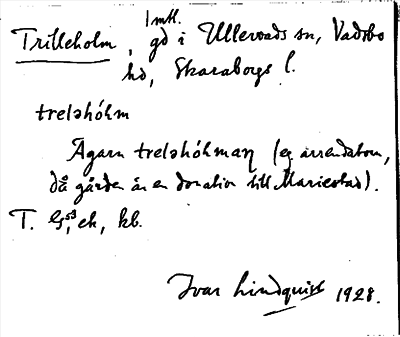 Trilleholm, 1 mtl. gd i Ullervads sn, Vadsbo
hd, Skaraborgs l.
treləhólm
Ägarn treləhólmaṇ (eg arrendatorn,
då gården är en donation till Mariestad).
T. G, ek, kb.
Ivar Lindquist 1928.